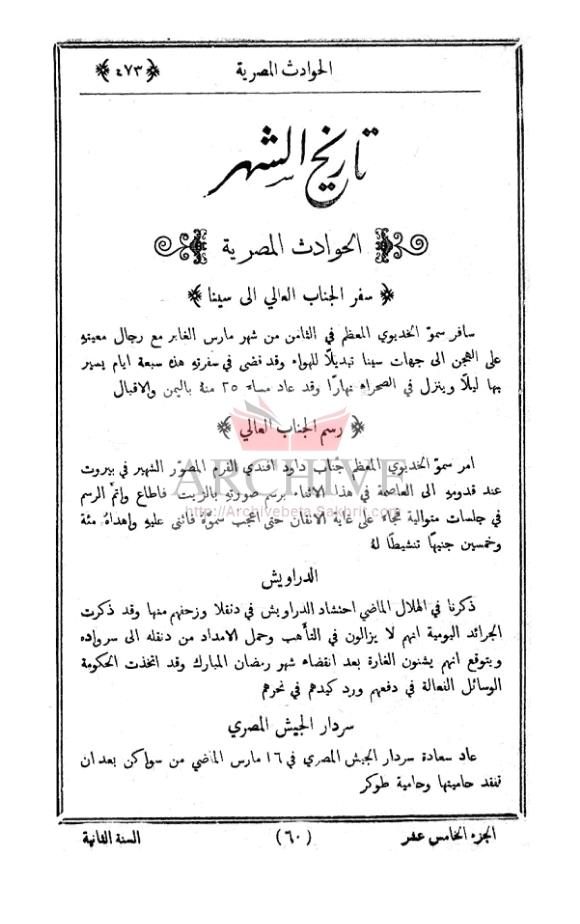 الحوادث المصرية ﴿٤٧٣﴾
تاريخ الشهر
الحوادث المصرية
﴿ سفر الجناب العالي الى سينا ﴾
سافر سموّ الخديوي المعظم في الثامن من شهر مارس الغابر مع رجال معيتهِ
على الهجن الى جهات سينا تبديلاً للهواء وقد قضى في سفرتهِ هذه سبعة ايام يسير
بها ليلاً وينزل في الصحراء نهارًا وقد عاد مساء ٢٥ منهُ باليمن والاقبال
﴿ رسم الجناب العالي ﴾
امر سموّ الخديوي المعظم جناب داود افندي القرم المصوّر الشهير في بيروت
عند قدومهِ الى العاصمة في هذا الاثناء برسم صورتهِ بالزيت فاطاع واتمّ الرسم
في جلسات متوالية فجاء على غاية الاتقان حتى اعجب سموّهُ فاثنى عليهِ واهداهُ مئة
وخمسين جنيهًا تنشيطًا لهُ
ARCHIVE
http://Archivebeta.Sakhrit.com
الدراويش
ذكرنا في الهلال الماضي احتشاد الدراويش في دنقلا وزحفهم منها وقد ذكرت
الجرائد اليومية انهم لا يزالون في التأهب وحمل الامداد من دنقله الى سرواده
ويتوقع انهم يشنون الغارة بعد انقضاء شهر رمضان المبارك وقد اتخذت الحكومة
الوسائل الفعالة في دفعهم ورد كيدهم في نحرهم
سردار الجيش المصري
عاد سعادة سردار الجيش المصري في ١٦ مارس الماضي من سواكن بعد ان
تفقد حاميتها وحامية طوكر
الجزء الخامس عشر (٦٠) السنة الثانية